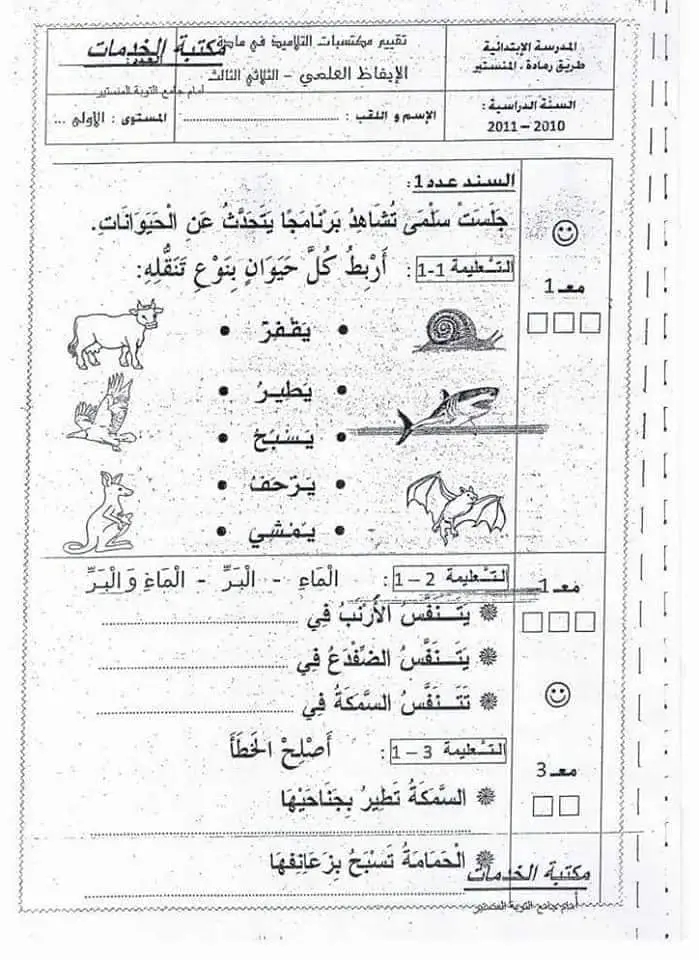 المدرسة الإبتدائية
طريق رمادة - المنستير
تقييم مكتسبات التلاميذ في مادة
الإيقاظ العلمي - الثلاثي الثالث
مكتبة الخدمات
العدد:
أمام جامع التوبة المنستير
السنة الدراسية :
2010 – 2011
الإسم و اللقب : ........................................
المستوى : الأولى ...
السند عدد 1:
جَلَسَتْ سَلْمَى تُشَاهِدُ بَرْنَامَجًا يَتَحَدَّثُ عَنِ الْحَيَوَانَاتِ.
التعليمة 1-1 : أَرْبِطُ كُلَّ حَيَوَانٍ بِنَوْعِ تَنَقُّلِهِ:
معـ 1
• يَقْفِزُ •
• يَطيـرُ •
• يَـسْبَحُ •
• يَـزْحَفُ •
• يَـمْشي •
التعليمة 2 – 1 : الْمَاءِ - الْبَرِّ - الْمَاءِ وَ الْبَرِّ
معـ 1
يَتَـــنَفَّسُ الأَرْنَبُ فِي ........................
يَتَـــنَفَّسُ الضِّفْدَعُ فِي ........................
تَتَـــنَفَّسُ السَّمَكَةُ فِي ........................
التعليمة 3 – 1 : أَصْلِحُ الخَطَأَ
معـ 3
السَّمَكَةُ تَطِيرُ بِجَنَاحَيْهَا
................................................
الْحَمَامَةُ تَسْبَحُ بِزَعَانِفِهَا
................................................
مكتبة الخدمات
أمام جامع التوبة المنستير